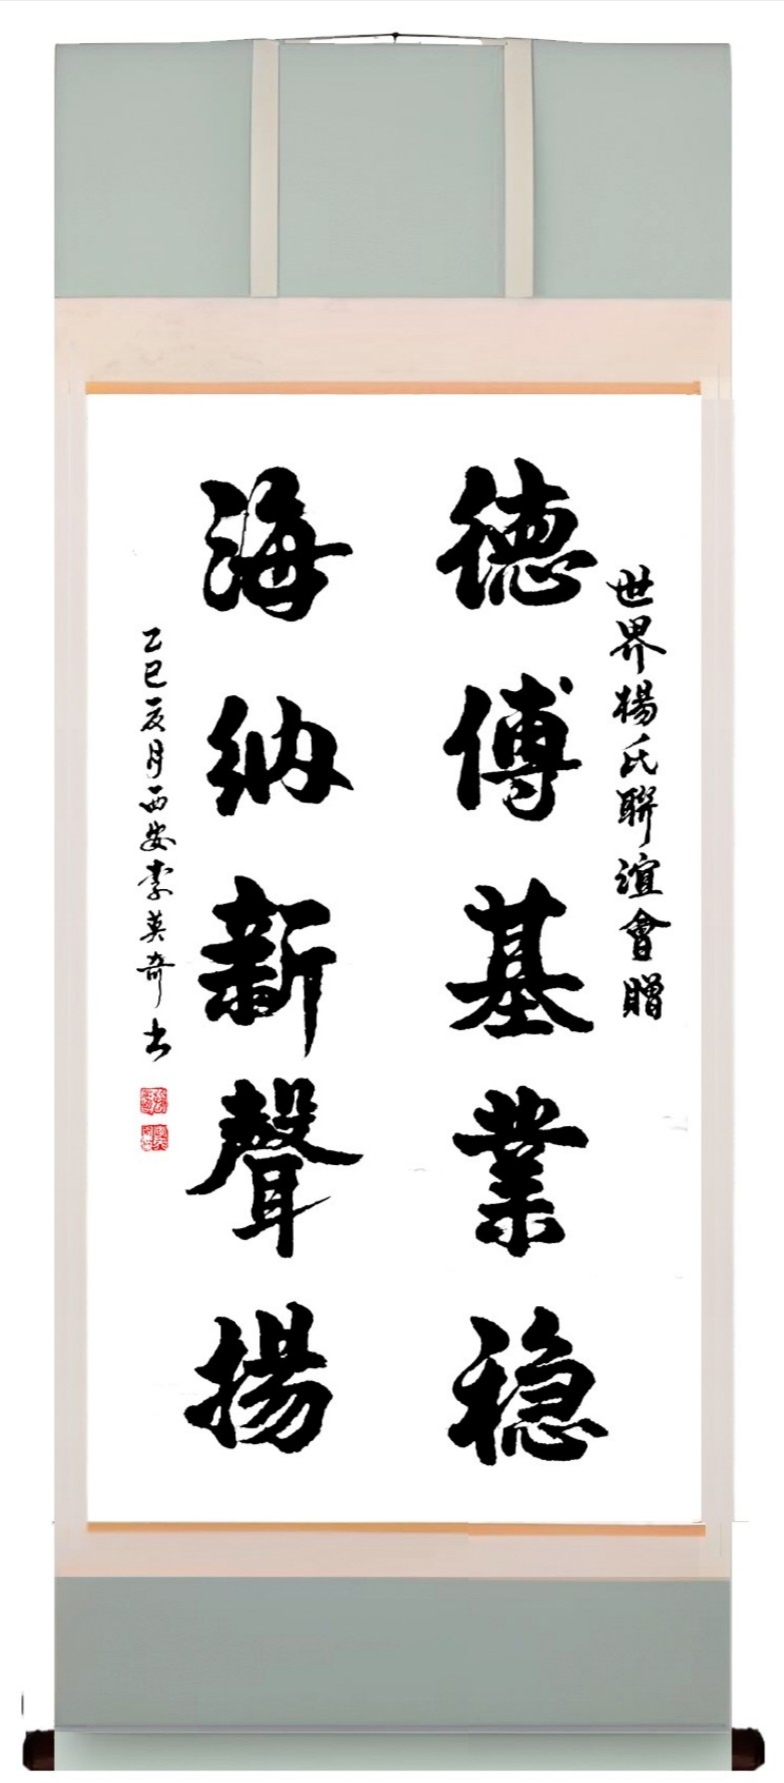 世界楊氏聯誼會贈
德傅基業稳
海納新聲揚
乙巳亥月西安李英奇书